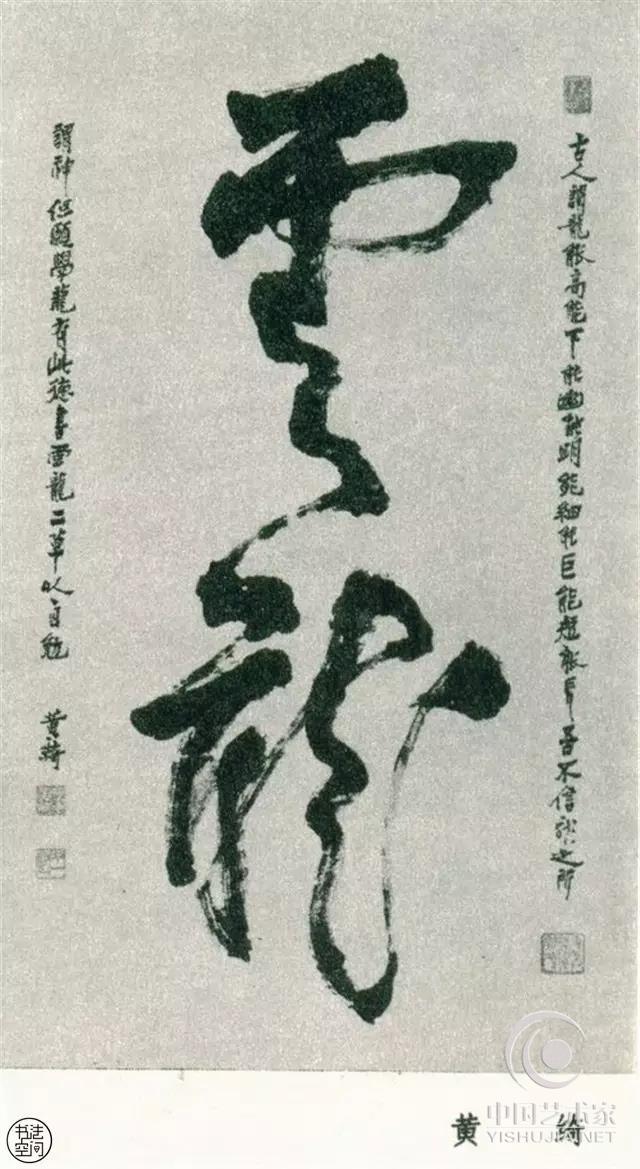 古人謂龍能高能下能幽能明能細能巨能短能長吾不信龍之所
雲龍
謂神但願學龍有此德書雲龍二草以自勉
黄綺
黄绮
中国艺术家
YISHUJIA.NET
书法空间